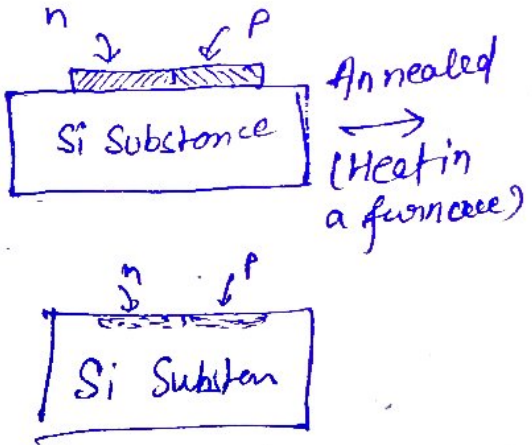 n p
Si Substance
Annealed
(Heat in
a furnace)
n p
Si Substan